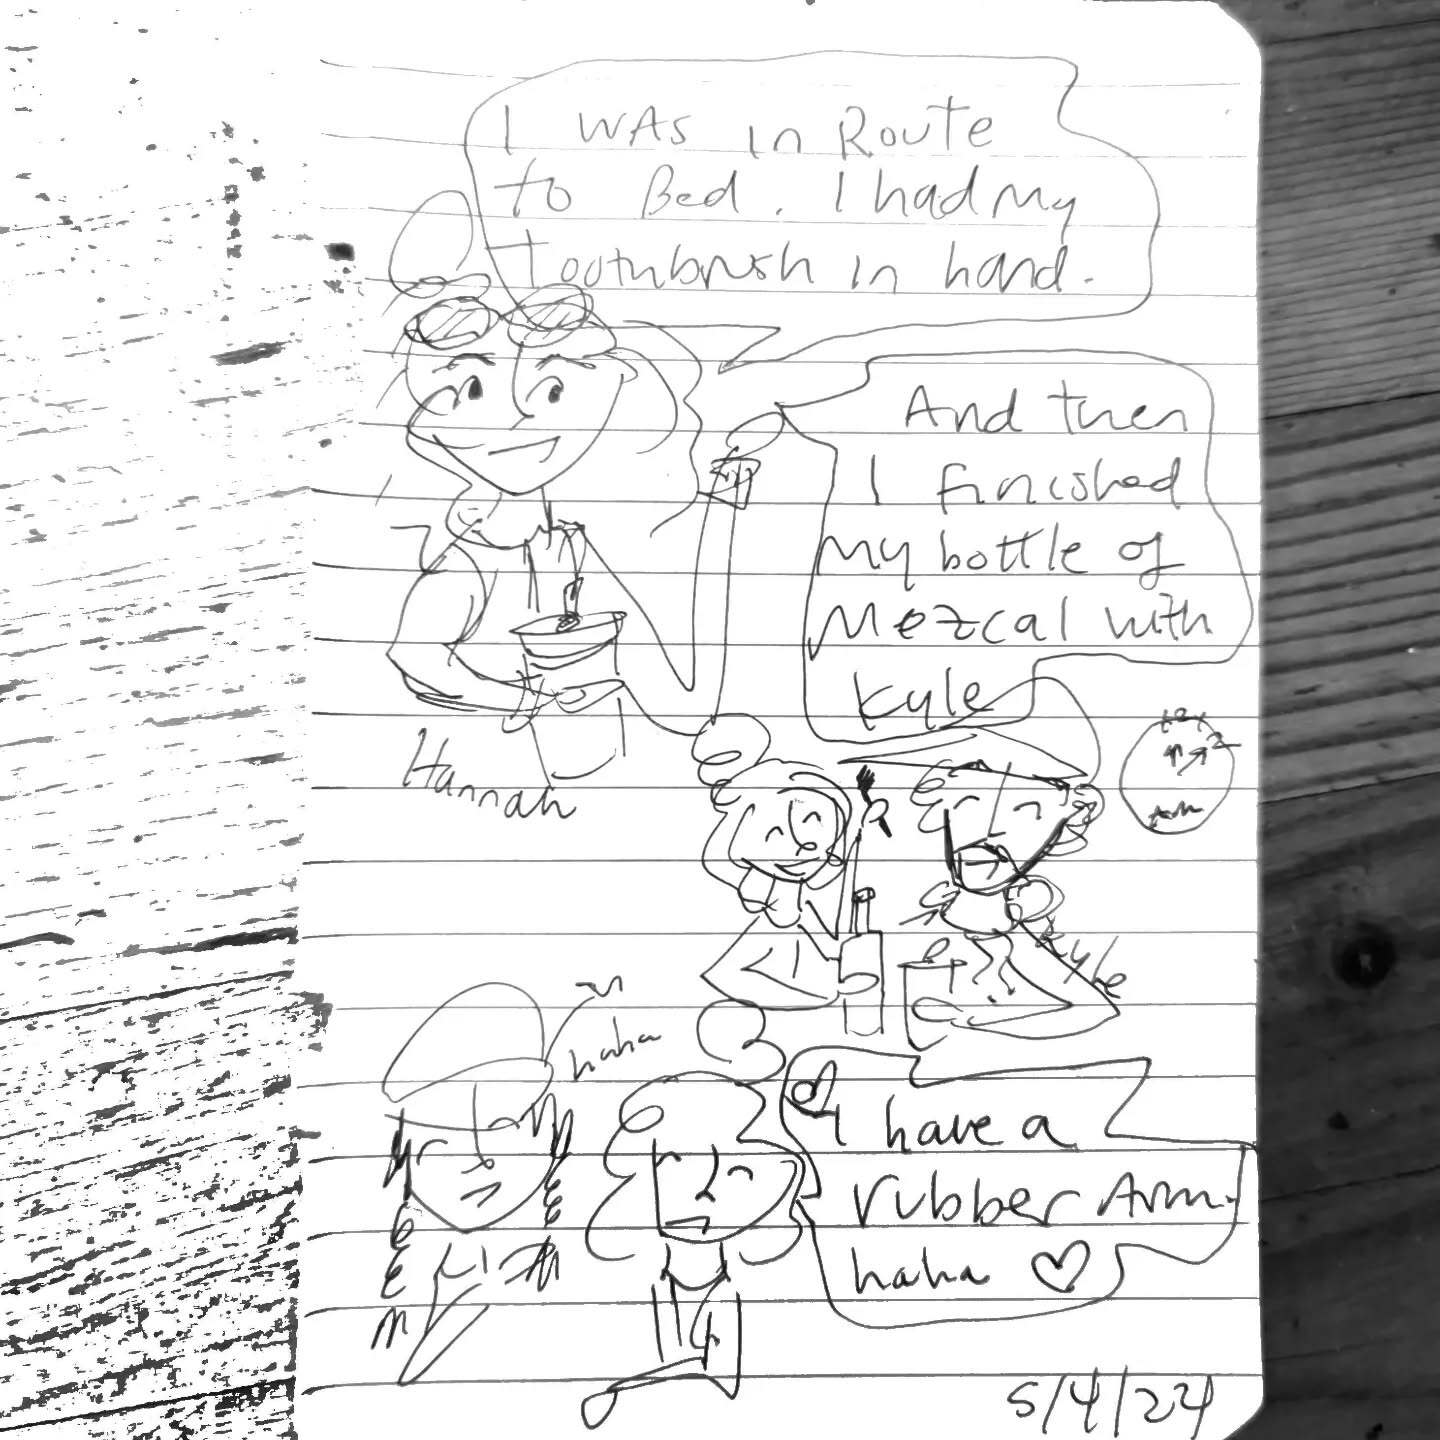 I WAS in Route
to Bed. I had my
toothbrush in hand.
And then
I finished
my bottle of
Mezcal with
Kyle
Hannah
12
2
Am
Kyle
haha
I have a
rubber Arm.
haha ♡
5/4/24